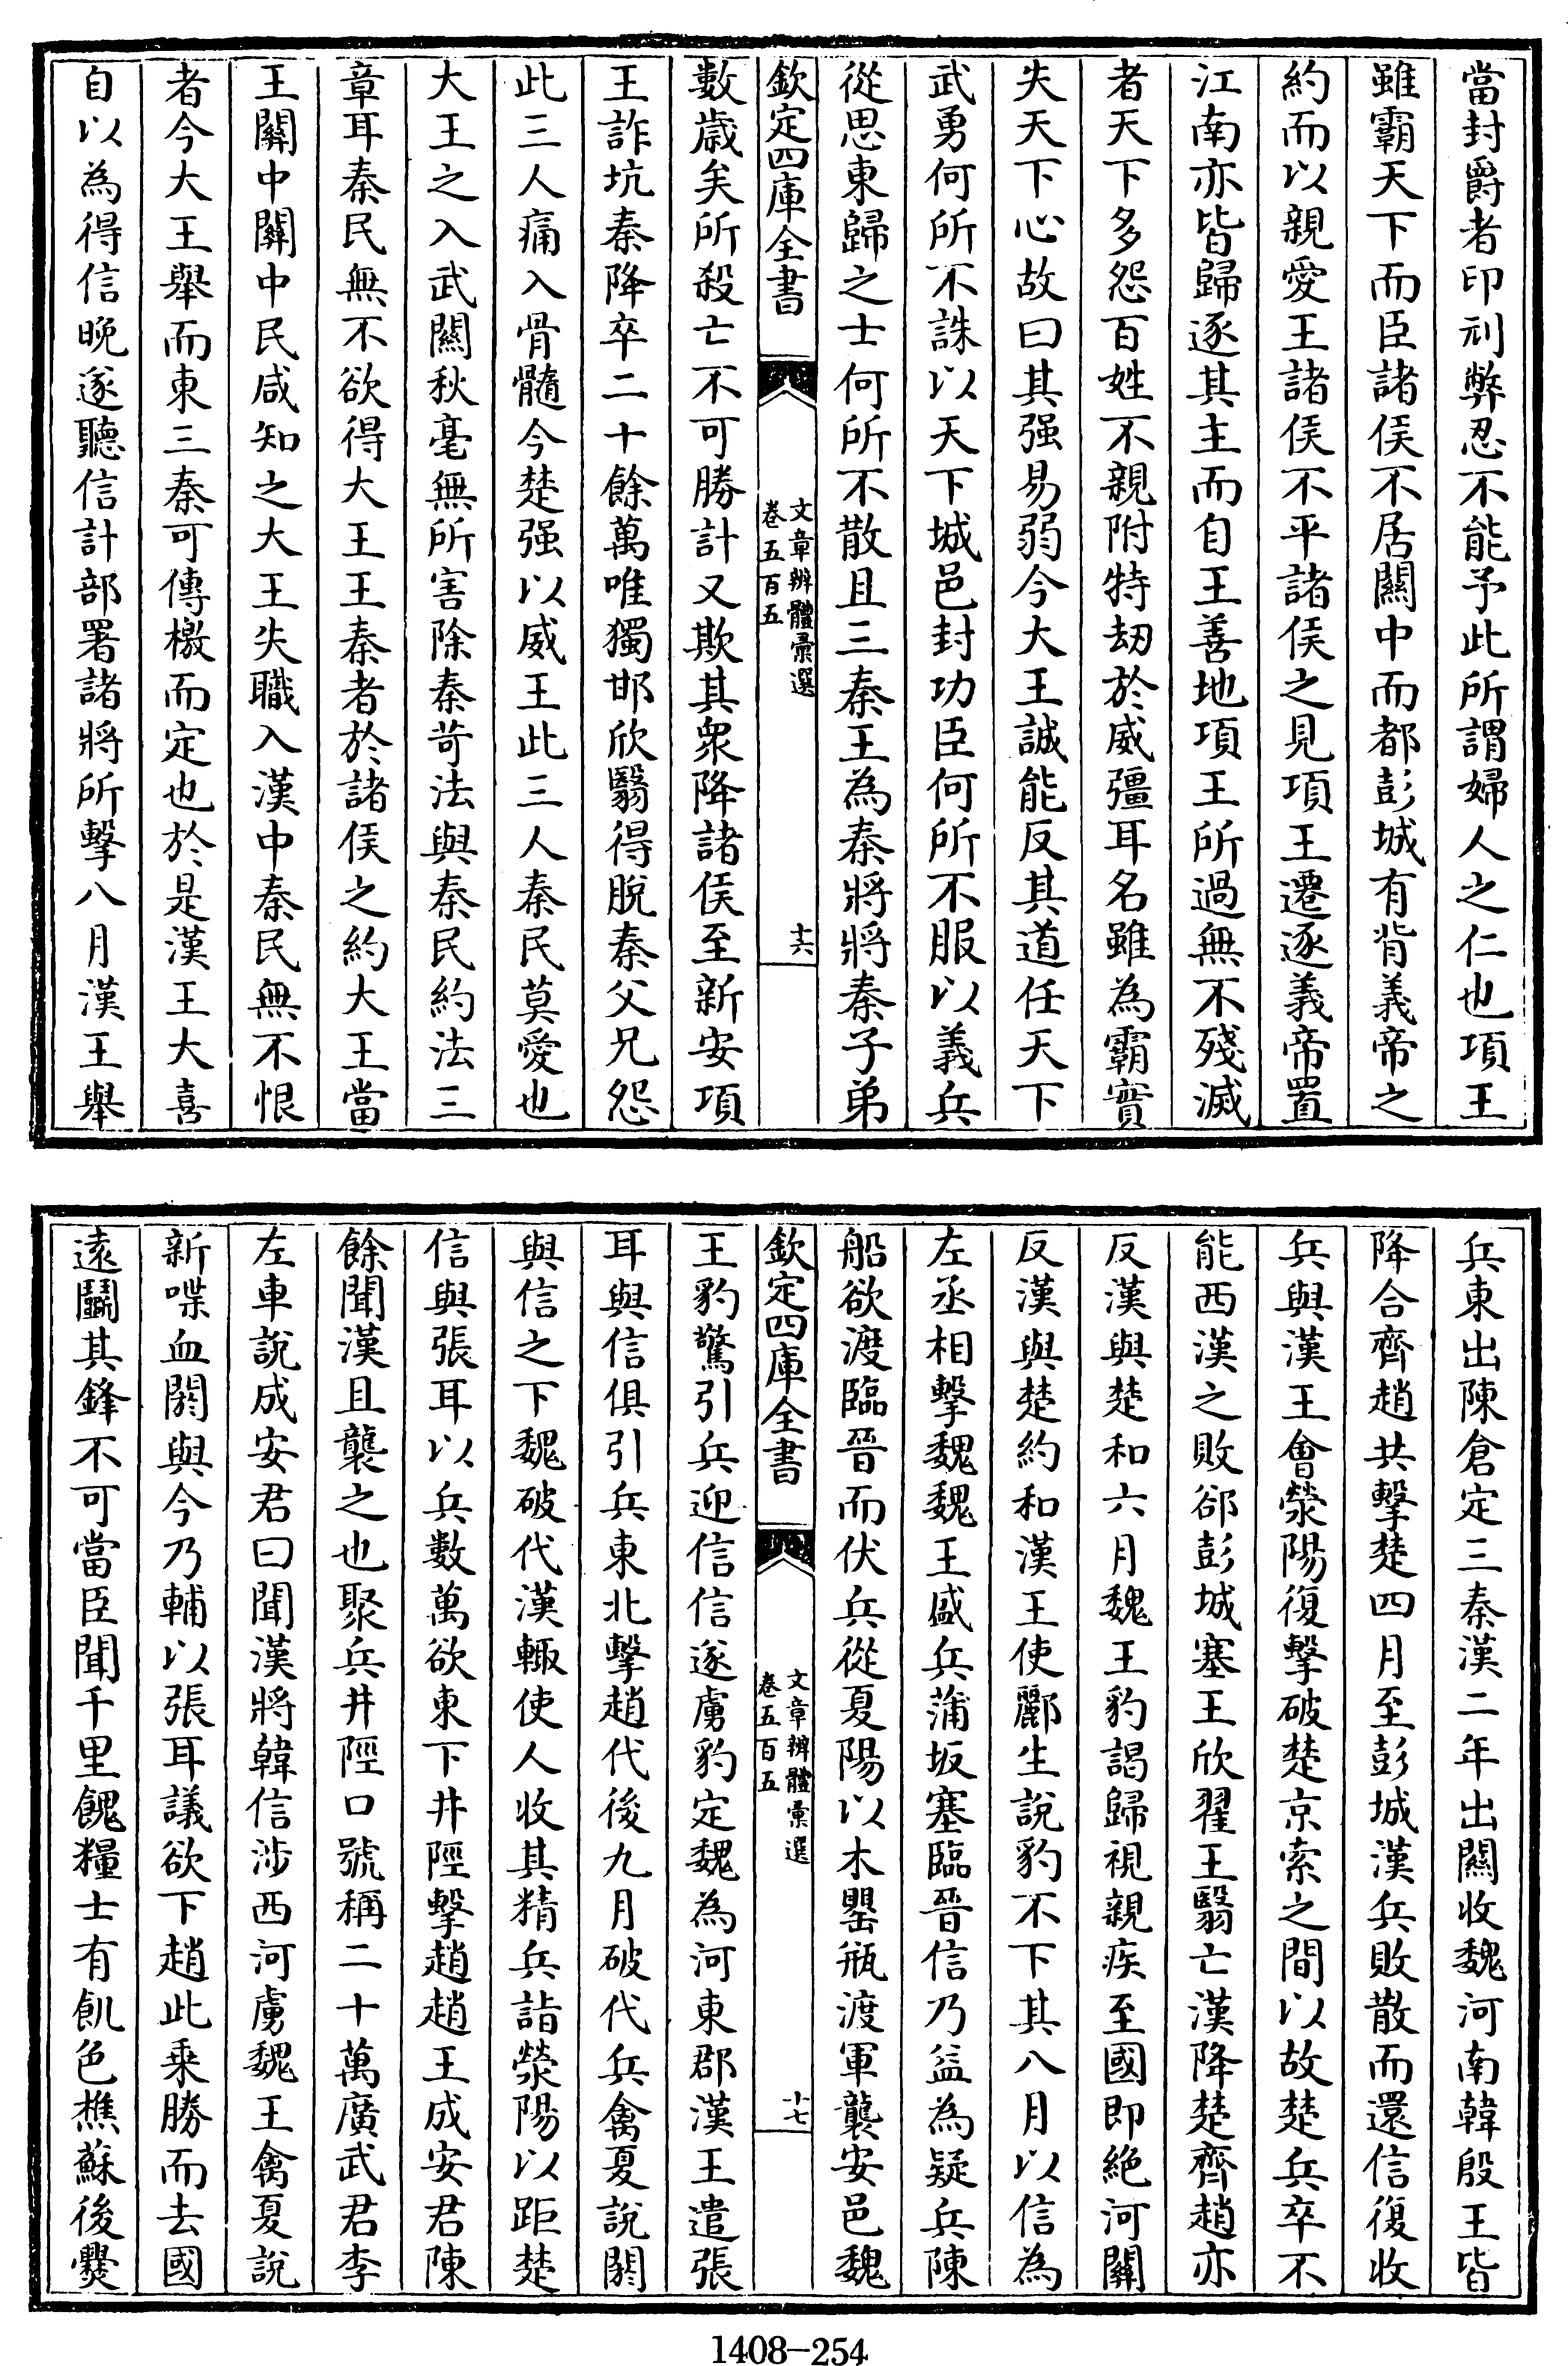 當封爵者印刓弊忍不能予此所謂婦人之仁也項王
雖霸天下而臣諸侯不居關中而都彭城有背義帝之
約而以親愛王諸侯不平諸侯之見項王遷逐義帝置
江南亦皆歸逐其主而自王善地項王所過無不殘滅
者天下多怨百姓不親附特刼於威彊耳名雖為霸實
失天下心故曰其强易弱今大王誠能反其道任天下
武勇何所不誅以天下城邑封功臣何所不服以義兵
從思東歸之士何所不散且三秦王為秦將將秦子弟
欽定四庫全書
文章辨體彚選
卷五百五
十六
數歲矣所殺亡不可勝計又欺其衆降諸侯至新安項
王詐坑秦降卒二十餘萬唯獨邯欣翳得脫秦父兄怨
此三人痛入骨髓今楚强以威王此三人秦民莫愛也
大王之入武關秋毫無所害除秦苛法與秦民約法三
章耳秦民無不欲得大王王秦者於諸侯之約大王當
王關中關中民咸知之大王失職入漢中秦民無不恨
者今大王舉而東三秦可傳檄而定也於是漢王大喜
自以為得信晚遂聽信計部署諸將所擊八月漢王舉
兵東出陳倉定三秦漢二年出關收魏河南韓殷王皆
降合齊趙共擊楚四月至彭城漢兵敗散而還信復收
兵與漢王會滎陽復擊破楚京索之間以故楚兵卒不
能西漢之敗郤彭城塞王欣翟王翳亡漢降楚齊趙亦
反漢與楚和六月魏王豹謁歸視親疾至國即絕河關
反漢與楚約和漢王使酈生說豹不下其八月以信為
左丞相擊魏魏王盛兵蒲坂塞臨晉信乃益為疑兵陳
船欲渡臨晉而伏兵從夏陽以木罌缻渡軍襲安邑魏
欽定四庫全書
文章辨體彚選
卷五百五
十七
王豹驚引兵迎信信遂虜豹定魏為河東郡漢王遣張
耳與信俱引兵東北擊趙代後九月破代兵禽夏說閼
與信之下魏破代漢輒使人收其精兵詣滎陽以距楚
信與張耳以兵數萬欲東下井陘擊趙趙王成安君陳
餘聞漢且襲之也聚兵井陘口號稱二十萬廣武君李
左車說成安君曰聞漢將韓信涉西河虜魏王禽夏說
新喋血閼與今乃輔以張耳議欲下趙此乘勝而去國
遠鬭其鋒不可當臣聞千里餽糧士有飢色樵蘇後爨
1408-254